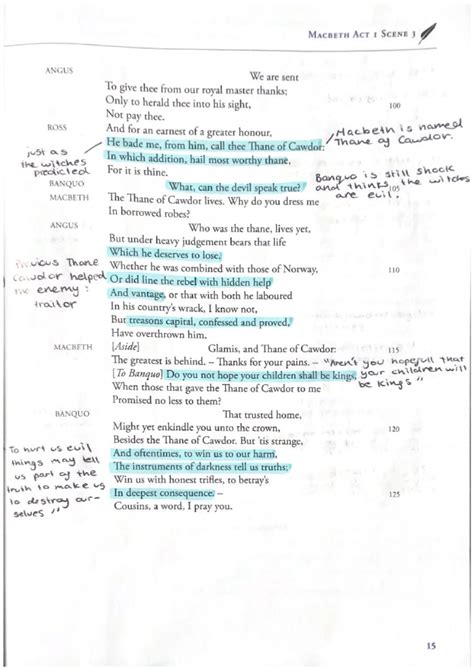 MACBETH ACT 1 SCENE 3
ANGUS
We are sent
To give thee from our royal master thanks;
Only to herald thee into his sight,
100
Not pay thee.
ROSS
And for an earnest of a greater honour,
He bade me, from him, call thee Thane of Cawdor:
Macbeth is named
Thane of Cawdor.
just as
the witches
predicted
In which addition, hail most worthy thane,
For it is thine.
BANQUO
What, can the devil speak true?
105
Banquo is still shock
and thinks the witches
are evil.
MACBETH
The Thane of Cawdor lives. Why do you dress me
In borrowed robes?
ANGUS
Who was the thane, lives yet,
But under heavy judgement bears that life
Which he deserves to lose.
Previous Thane
Cawdor helped
the enemy:
traitor
Whether he was combined with those of Norway,
110
Or did line the rebel with hidden help
And vantage, or that with both he laboured
In his country's wrack, I know not,
But treasons capital, confessed and proved,
Have overthrown him.
MACBETH
[Aside] Glamis, and Thane of Cawdor:
115
The greatest is behind. – Thanks for your pains. –
[To Banquo] Do you not hope your children shall be kings,
"Aren't you hopefull that
your children will
be kings"
When those that gave the Thane of Cawdor to me
Promised no less to them?
BANQUO
That trusted home,
Might yet enkindle you unto the crown,
120
Besides the Thane of Cawdor. But 'tis strange,
And oftentimes, to win us to our harm,
The instruments of darkness tell us truths;
Win us with honest trifles, to betray's
In deepest consequence. –
125
Cousins, a word, I pray you.
To hurt us evil
things may tell
us part of the
truth to make us
to destroy our-
selves"
15